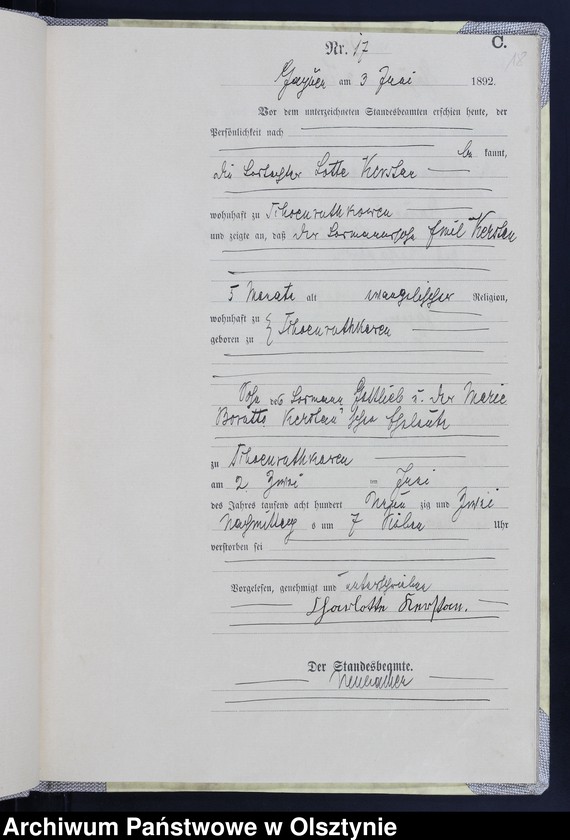 C.
Nr. 17
18
Gayüen am 3 Juni 1892.
Vor dem unterzeichneten Standesbeamten erschien heute, der
Persönlichkeit nach
be kannt,
die Lostochter Lotte Kerstan
wohnhaft zu
und zeigte an, daß der Losmannssohn Emil Kerstan
5 Monate alt evangelischer Religion,
wohnhaft zu
geboren zu
Sohn des Losmann Gottlieb u. der Marie
Boratta Kerstan'schen Eheleute
zu
am 2 Zwei ten Juni
des Jahres tausend acht hundert Neun zig und Zwei
Nachmittag s um 7 Sieben Uhr
verstorben sei
Vorgelesen, genehmigt und unterschrieben
Charlotte Kerstan.
Der Standesbeamte.
Archiwum Państwowe w Olsztynie